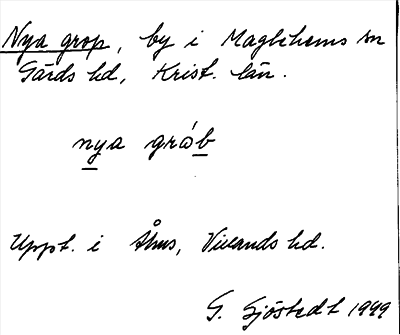 Nya grop, by i Maglehems sn
Gärds hd, Krist. län.
nya gråb
Uppt. i Åhus, Villands hd.
G. Sjöstedt 1949